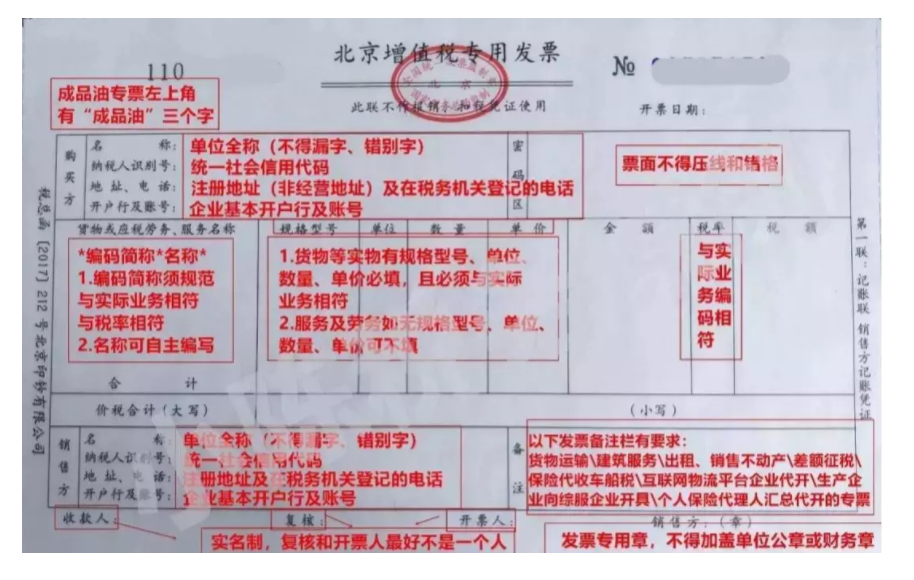 北京增值税专用发票
110
№
此联不作报销、扣税凭证使用
开票日期：
成品油专票左上角
有“成品油”三个字
税总函〔2017〕212号北京印钞有限公司
购买方
名 称：
纳税人识别号：
地 址、电 话：
开户行及账号：
单位全称（不得漏字、错别字）
统一社会信用代码
注册地址（非经营地址）及在税务机关登记的电话
企业基本开户行及账号
密码区
票面不得压线和错格
货物或应税劳务、服务名称
规格型号
单位
数 量
单 价
金 额
税率
税 额
*编码简称*名称*
1.编码简称须规范
与实际业务相符
与税率相符
2.名称可自主编写
1.货物等实物有规格型号、单位、
数量、单价必填，且必须与实际
业务相符
2.服务及劳务如无规格型号、单位、
数量、单价可不填
与实
际业
务编
码相
符
第一联：记账联 销售方记账凭证
合 计
价税合计（大写）
（小写）
销售方
名 称：
纳税人识别号：
地 址、电 话：
开户行及账号：
单位全称（不得漏字、错别字）
统一社会信用代码
注册地址及在税务机关登记的电话
企业基本开户行及账号
备注
以下发票备注栏有要求：
货物运输\建筑服务\出租、销售不动产\差额征税\
保险代收车船税\互联网物流平台企业代开\生产企
业向综服企业开具\个人保险代理人汇总代开的专票
收款人：
复核：
开票人：
销售方：（章）
实名制，复核和开票人最好不是一个人
发票专用章，不得加盖单位公章或财务章